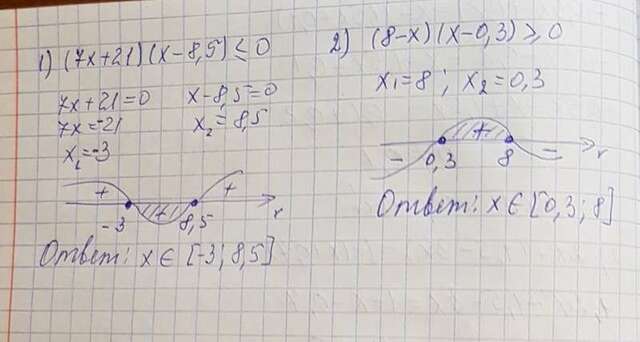 1) (7x+21)(x-8,5) ≤ 0
7x+21=0 x-8,5=0
7x=-21 x₂=8,5
x₁=-3
+ + +
-3 8,5 r
Ответ: x ∈ [-3; 8,5]
2) (8-x)(x-0,3) ≥ 0
x₁=8; x₂=0,3
- + -
0,3 8 r
Ответ: x ∈ [0,3; 8]